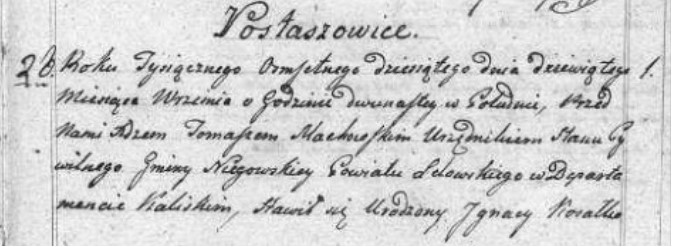 Postaszowice.
28. Roku Tysiącznego Ośmsetnego dziesiątego dnia dziewiątego
Miesiąca Września o Godzinie dwunastey w Południe, Przed
Nami Xdzem Tomaszem Urzędnikiem Stanu Cy
wilnego Gminy Niegowskiey Powiatu Lelowskiego w Departa
mencie Kaliskim, Stawił się Urodzony Ignacy